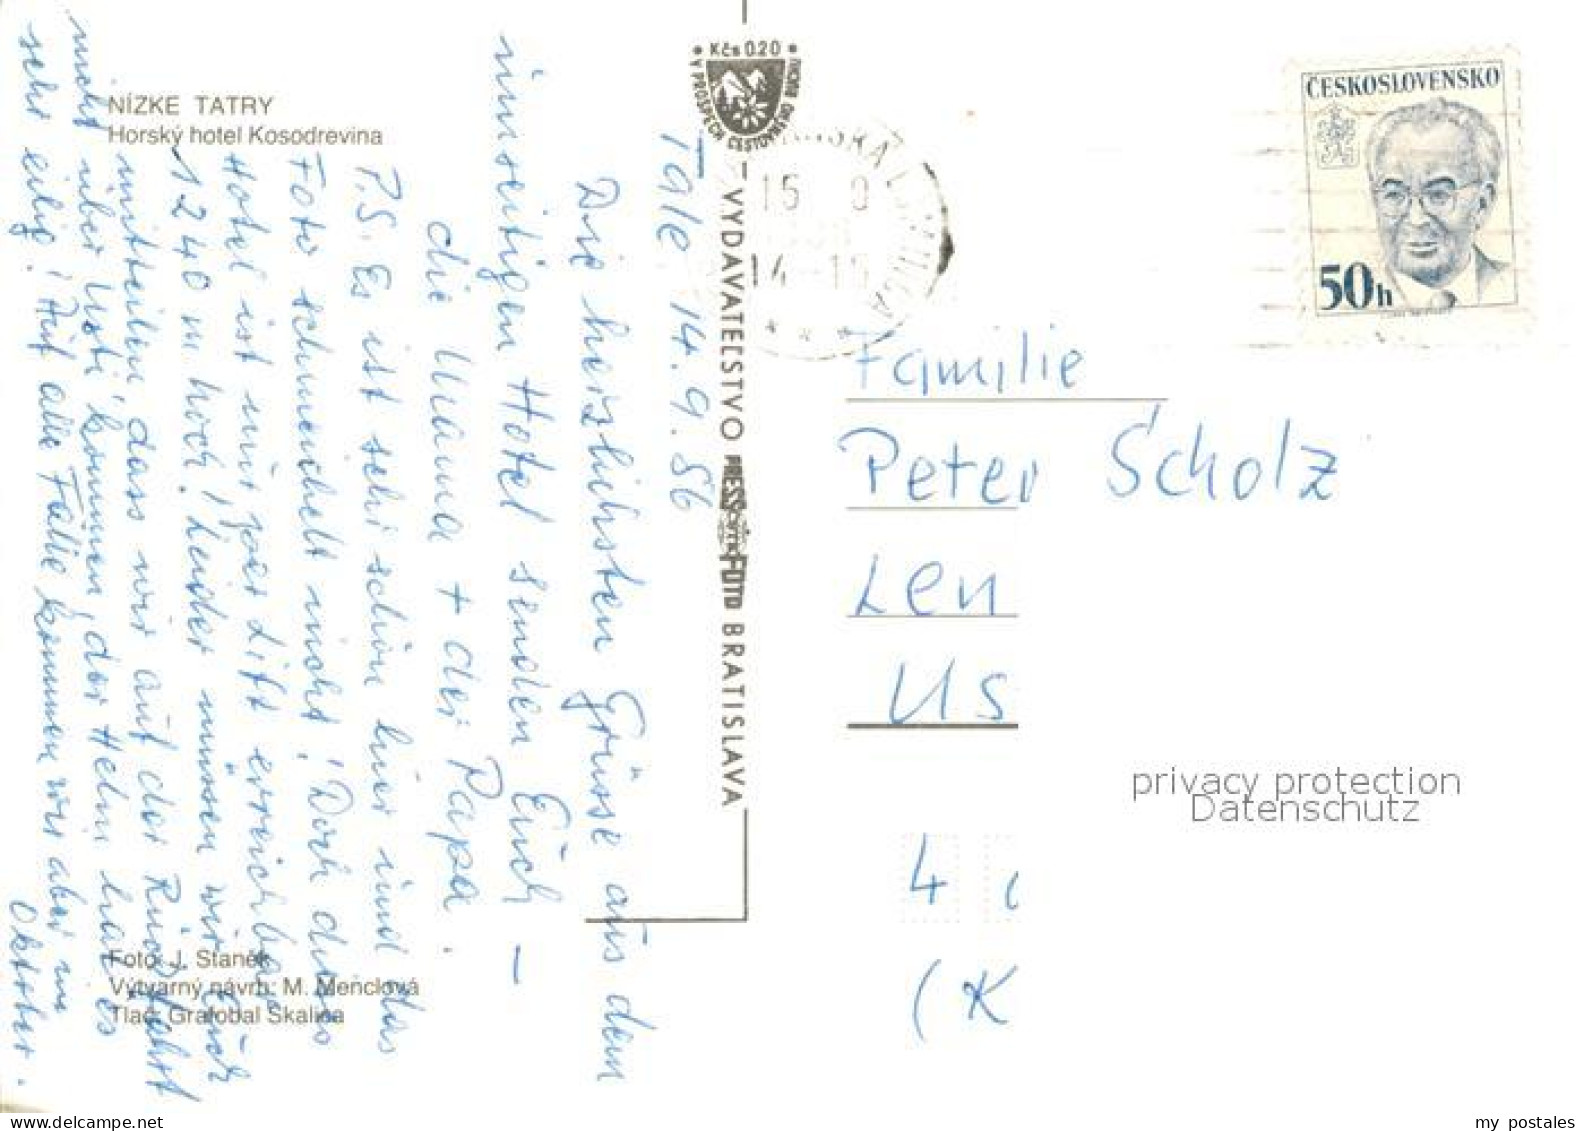 NÍZKE TATRY
Horský hotel Kosodrevina
Kčs 0.20
V PROSPECH CESTOVNÉHO RUCHU
ČESKOSLOVENSKO
50h
15
14-15
Tále, 14.9.86
Die herzlichsten Grüsse aus dem
umseitigen Hotel senden Euch –
die Mama + der Papa.
P.S. Es ist sehr schön hier und das
Foto schmeichelt nicht! Doch dieses
Hotel ist nur per Lift erreichbar
1240 m hoch! Leider müssen wir Euch
mitteilen, dass wir auf der Rückfahrt
nicht über Usti kommen, der Helm hat es
sehr eilig! Auf alle Fälle kommen wir aber im
Oktober.
VYDAVATEĽSTVO PRESSFOTO BRATISLAVA
Familie
Peter Scholz
Len
Us
4
(K
privacy protection
Datenschutz
Foto: J. Staněk
Výtvarný návrh: M. Menclová
Tlač: Grafobal Skalica
my postales